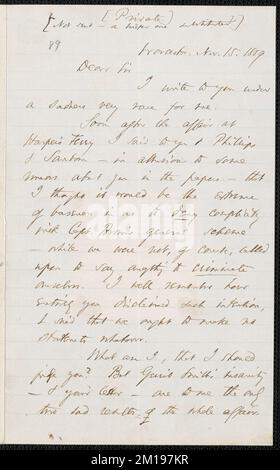 [Private]
[Not sent - a briefer one substituted]
89
Worcester, Nov. 15. 1859
Dear Sir
I write to you under
a sadness very rare for me.
Soon after the affair at
Harper's Ferry I said to you & Phillips
& Sanborn - in allusion to some
rumors about you in the papers - that
I thought it would be the extreme
of baseness in us to deny complicity
with Capt. Brown's general scheme
- while we were not of course, called
upon to say anything to criminate
ourselves. I well remember how
entirely you disclaimed such intention,
& said that we ought to make no
statements whatever.
What am I, that I should
judge you? But Gerrit Smith's insanity
- & your letter - are to me the only
two sad results of the whole affair.
alamy
alamy
Image ID: 2M197KR
www.alamy.com